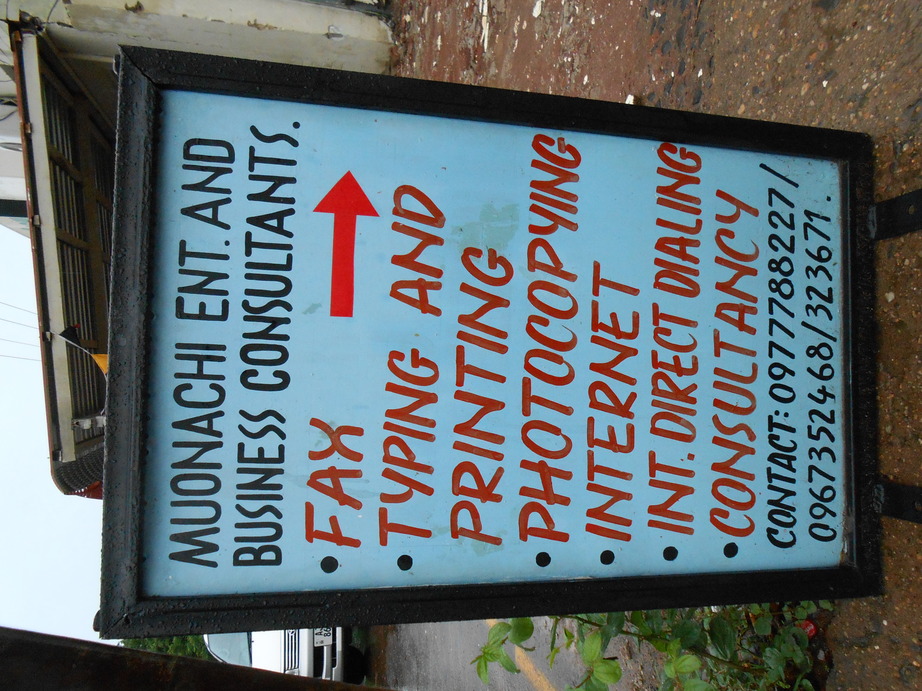 MUONACHI ENT. AND
BUSINESS CONSULTANTS.
• FAX
• TYPING AND
PRINTING
• PHOTOCOPYING
• INTERNET
• INT. DIRECT DIALING
• CONSULTANCY
CONTACT: 0977788227/
0967352468/323671.